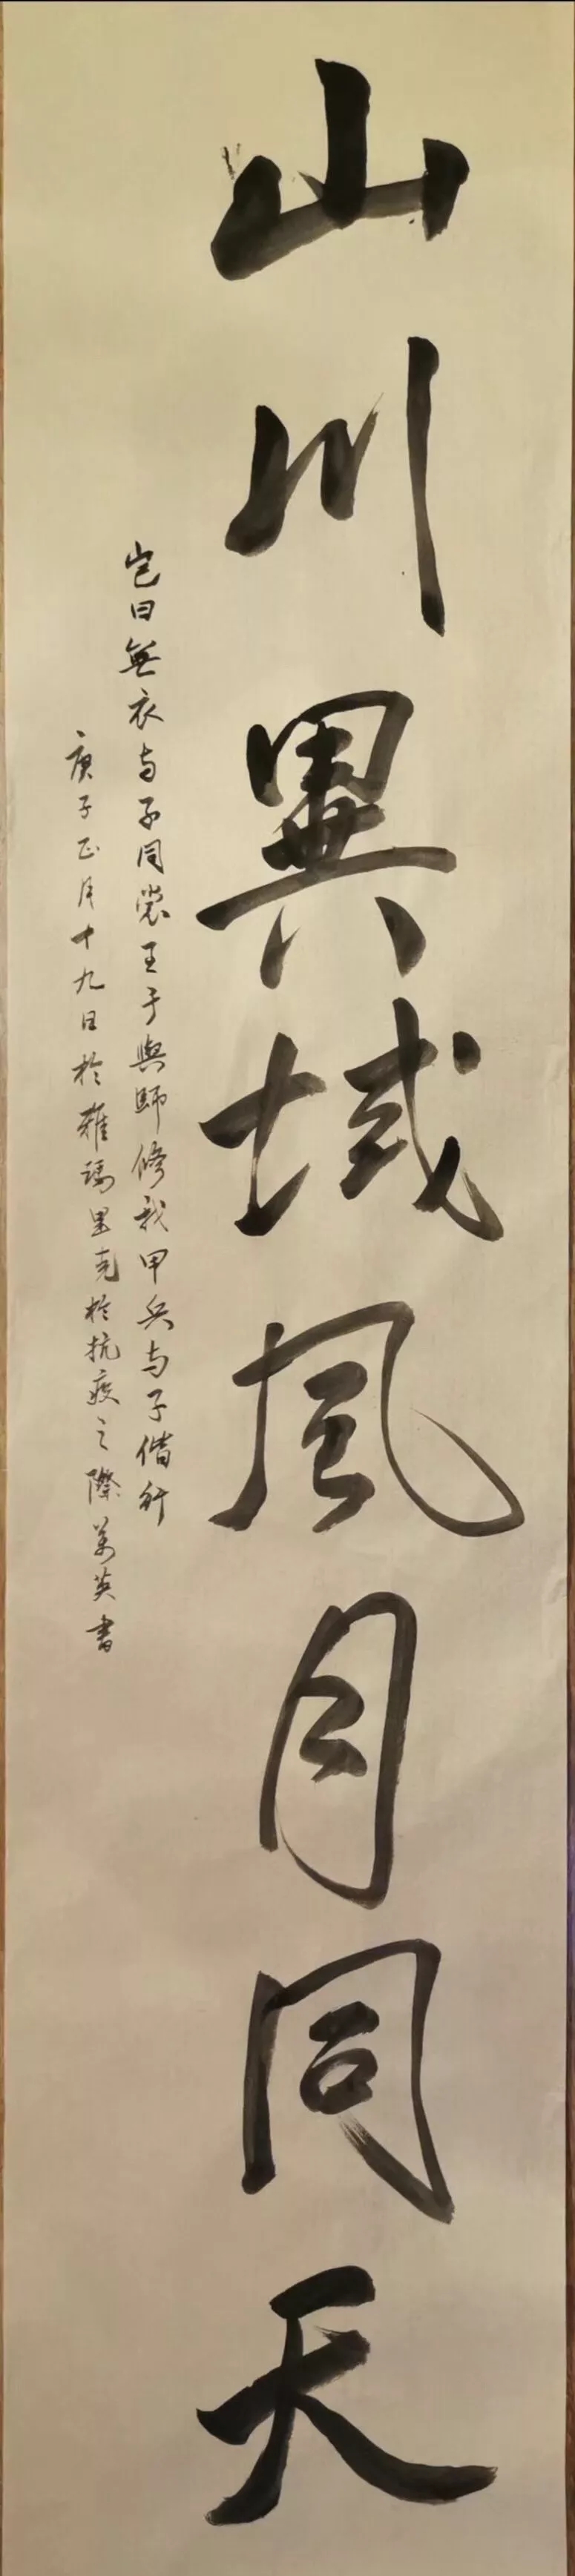 山川異域風月同天
豈曰無衣与子同裳王于興師修我甲兵与子偕行
庚子正月十九日於雅瑪里克於抗疫之際萬英書